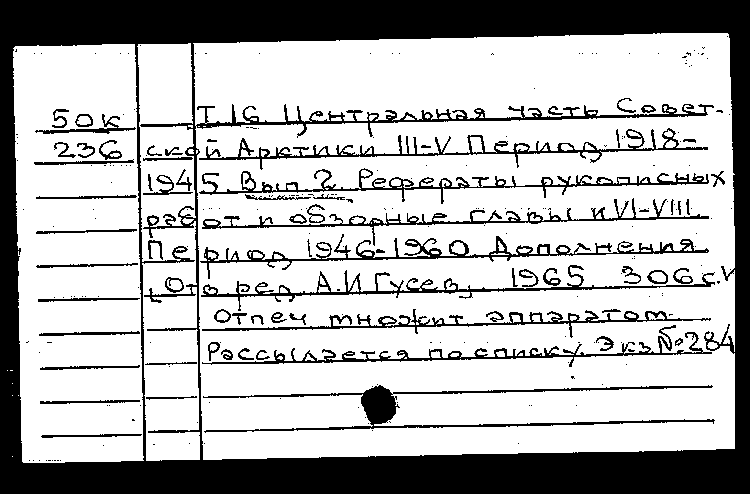 50к Т.16. Центральная часть Совет-
236 ской Арктики III-V Период 1918-
1945. Вып 2. Рефераты рукописных
работ и обзорные главы к VI-VIII.
Период 1946-1960. Дополнения
Отв ред. А.И Гусев, 1965 306 с.
Отпеч множит аппаратом.
Рассылается по списку. Экз. № 284